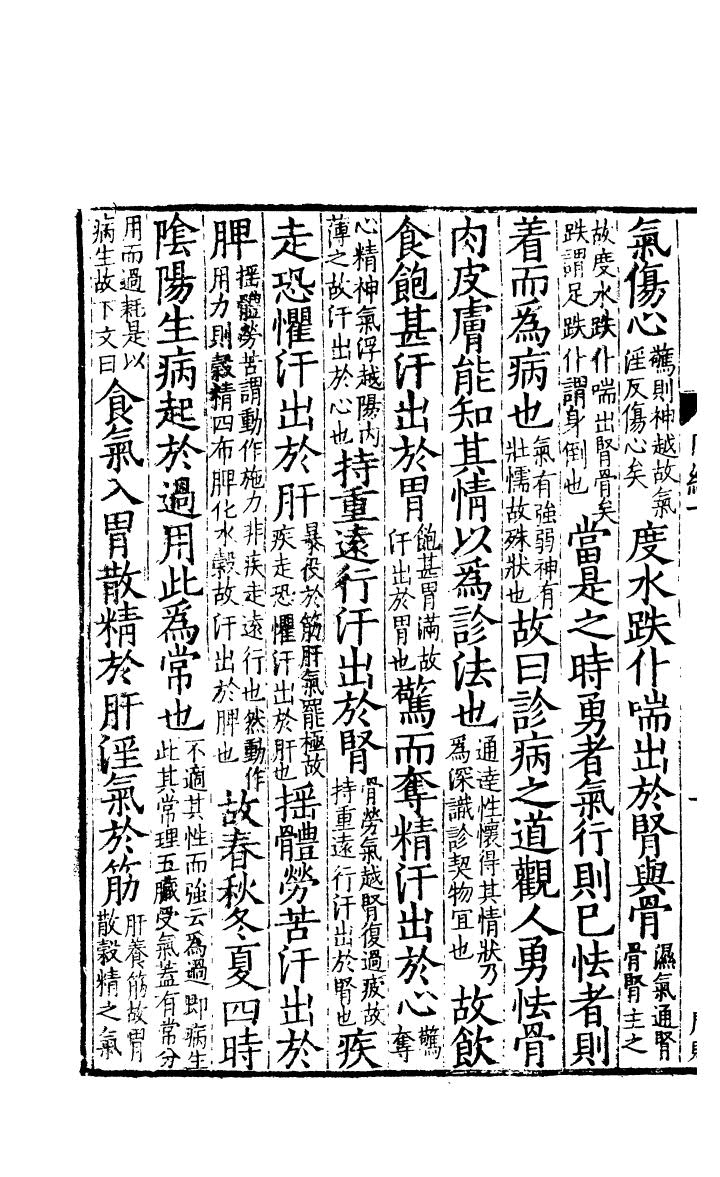 氣傷心驚則神越故氣淫反傷心矣度水跌仆喘出於腎與骨濕氣通腎骨腎主之
故度水跌仆喘出腎骨矣跌謂足跌仆謂身倒也當是之時勇者氣行則已怯者則
着而為病也氣有強弱神有壯懦故殊狀也故曰診病之道觀人勇怯骨
肉皮膚能知其情以為診法也通達性懷得其情狀乃為深識診契物宜也故飲
食飽甚汗出於胃飽甚胃滿故汗出於胃也驚而奪精汗出於心驚奪
心精神氣浮越陽內薄之故汗出於心也持重遠行汗出於腎骨勞氣越腎復過疲故持重遠行汗出於腎也疾
走恐懼汗出於肝暴役於筋肝氣罷極故疾走恐懼汗出於肝也揺體勞苦汗出於
脾揺體勞苦謂動作施力非疾走遠行也然動作用力則穀精四布脾化水穀故汗出於脾也故春秋冬夏四時
陰陽生病起於過用此為常也不適其性而強云為過即病生此其常理五臟受氣蓋有常分
用而過耗是以病生故下文曰食氣入胃散精於肝淫氣於筋肝養筋故胃散穀精之氣